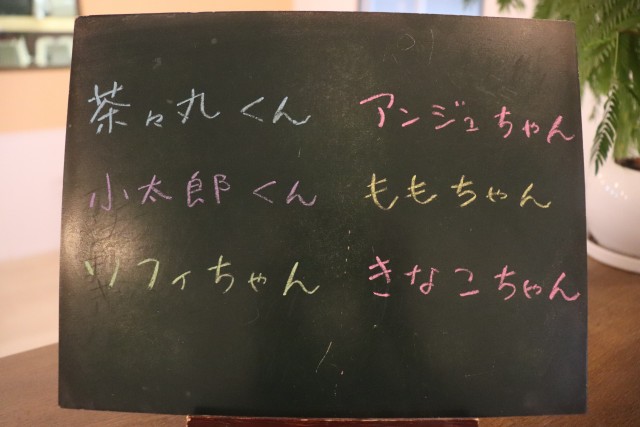 茶々丸くん
アンジュちゃん
小太郎くん
ももちゃん
ソフィちゃん
きなこちゃん